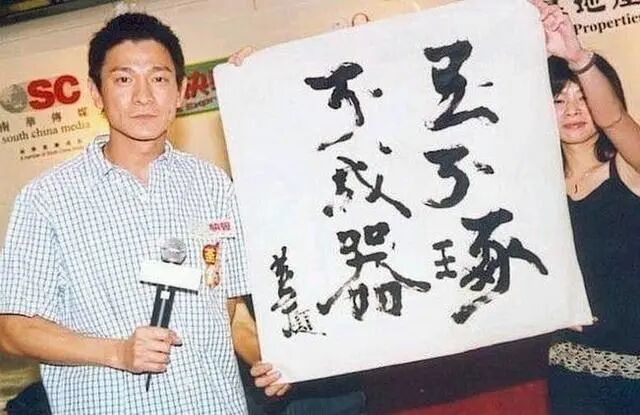 玉不琢
不成器
SC
南華傳媒
south china media
快
快報
地產
Properties